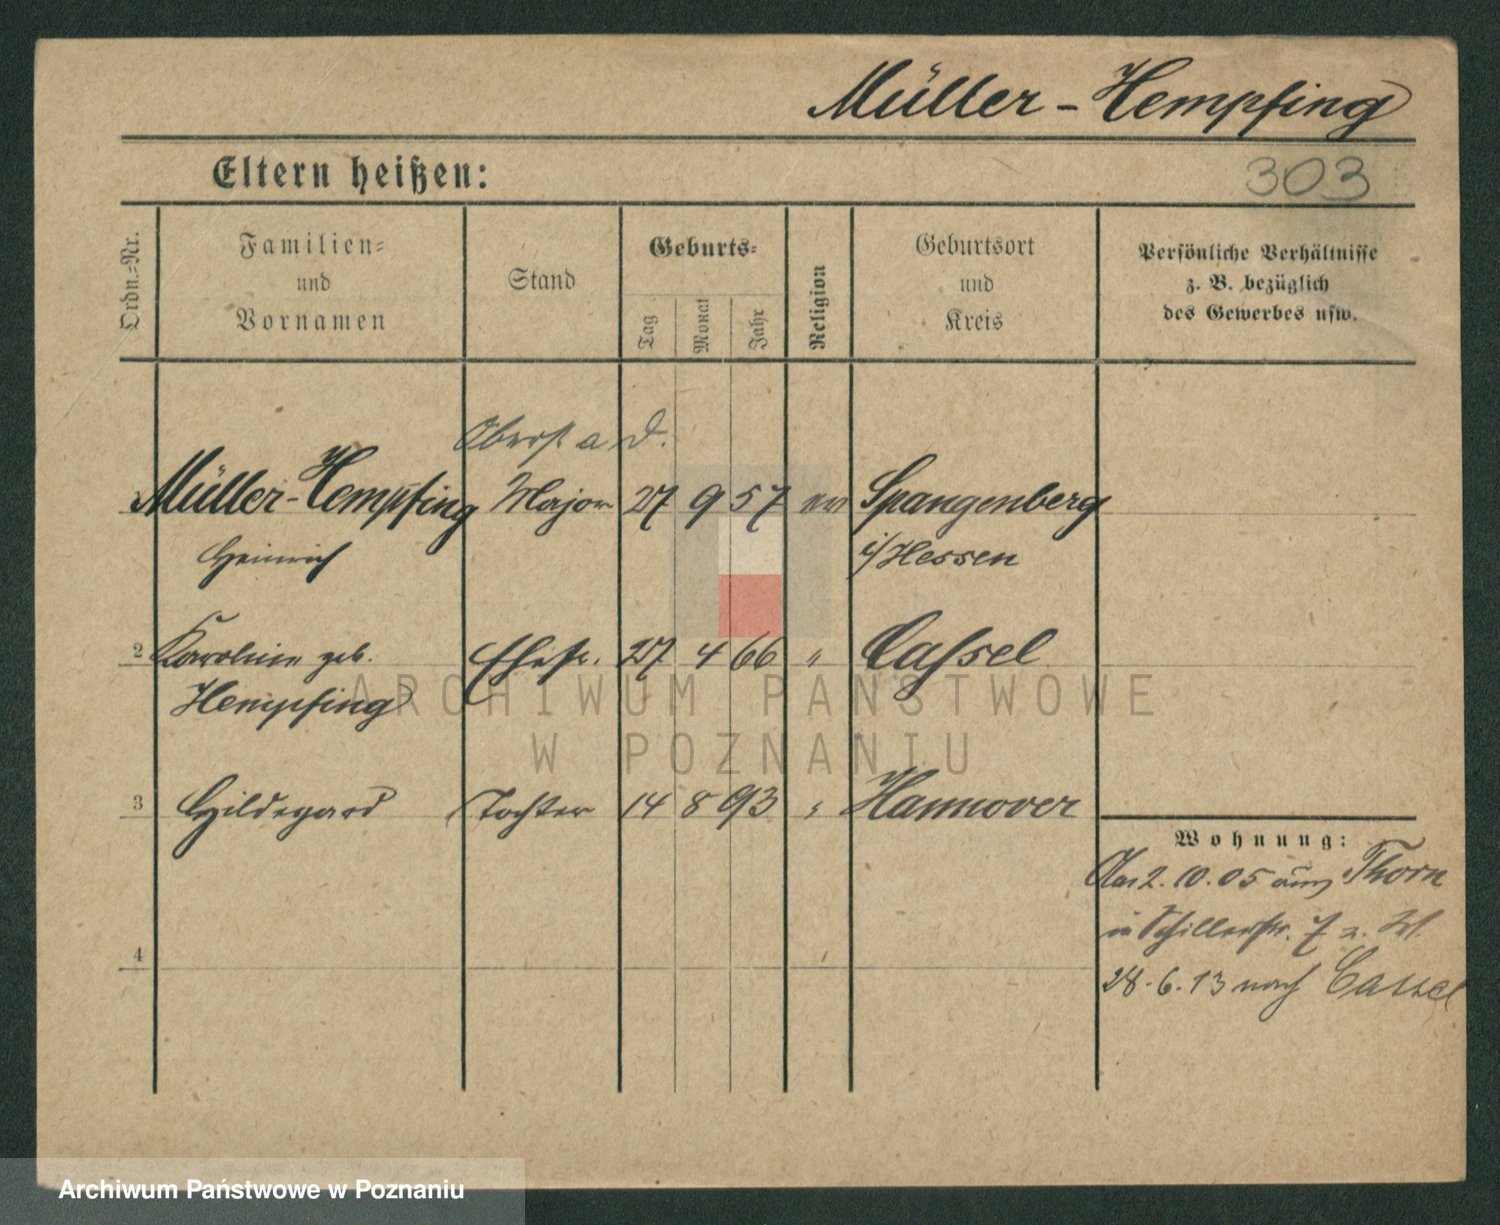 Müller-Hempfing
Eltern heißen:
303
Ordn.-Nr.
Familien-
und
Vornamen
Stand
Geburts-
Tag
Monat
Jahr
Religion
Geburtsort
und
Kreis
Persönliche Verhältnisse
z. B. bezüglich
des Gewerbes usw.
Oberst a. D.
Müller-Hempfing Major 27 9 57 ev Spangenberg
Heinrich i/Hessen
2 Karoline geb. Ehefr. 27 4 66 " Cassel
Hempfing
3 Hildegard Tochter 14 8 93 " Hannover
Wohnung:
2. 10. 05 Thorn
Schillerstr. 7
4
28.6.13 nach Cassel
ARCHIWUM PAŃSTWOWE
W POZNANIU
Archiwum Państwowe w Poznaniu